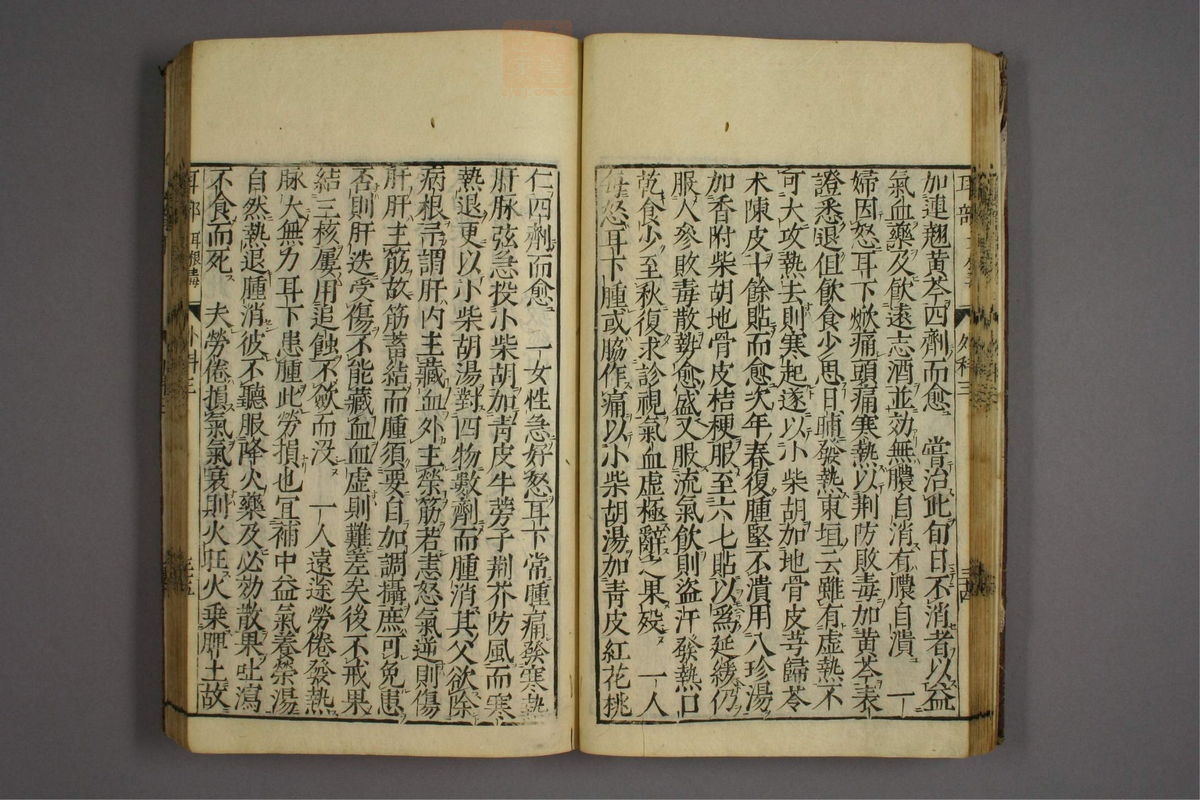 加連翹黃芩四劑而愈 嘗治此旬日不消者以益
氣血藥及飲遠志酒並効無膿自消有膿自潰 一
婦因怒耳下焮痛頭痛寒熱以荆防敗毒加黃芩表
證悉退但飲食少思日晡發熱東垣云雖有虛熱不
可大攻熱去則寒起遂以小柴胡加地骨皮芎歸苓
术陳皮十餘貼而愈次年春復腫堅不潰用八珍湯
加香附柴胡地骨皮桔梗服至六七貼以爲延緩仍
服人參敗毒散勢愈盛又服流氣飲則盗汗發熱口
乾食少至秋復求診視氣血虛極辭之果歿 一人
每怒耳下腫或脇作痛以小柴胡湯加青皮紅花桃
仁四劑而愈 一女性急好怒耳下常腫痛發寒熱
肝脉弦急投小柴胡加青皮牛蒡子荆芥防風而寒
熱退更以小柴胡湯對四物數劑而腫消其父欲除
病根予謂肝內主藏血外主榮筋若恚怒氣逆則傷
肝肝主筋故筋蓄結而腫須要自加調攝庶可免患
否則肝迭受傷不能藏血血虛則難差矣後不戒果
結三核屢用追蝕不斂而没 一人遠途勞倦發熱
脉大無力耳下患腫此勞損也宜補中益氣養榮湯
自然熱退腫消彼不聽服降火藥及必効散果吐瀉
不食而死 夫勞倦損氣氣衰則火旺火乘脾土故
耳部 耳根毒 外科三 三十五